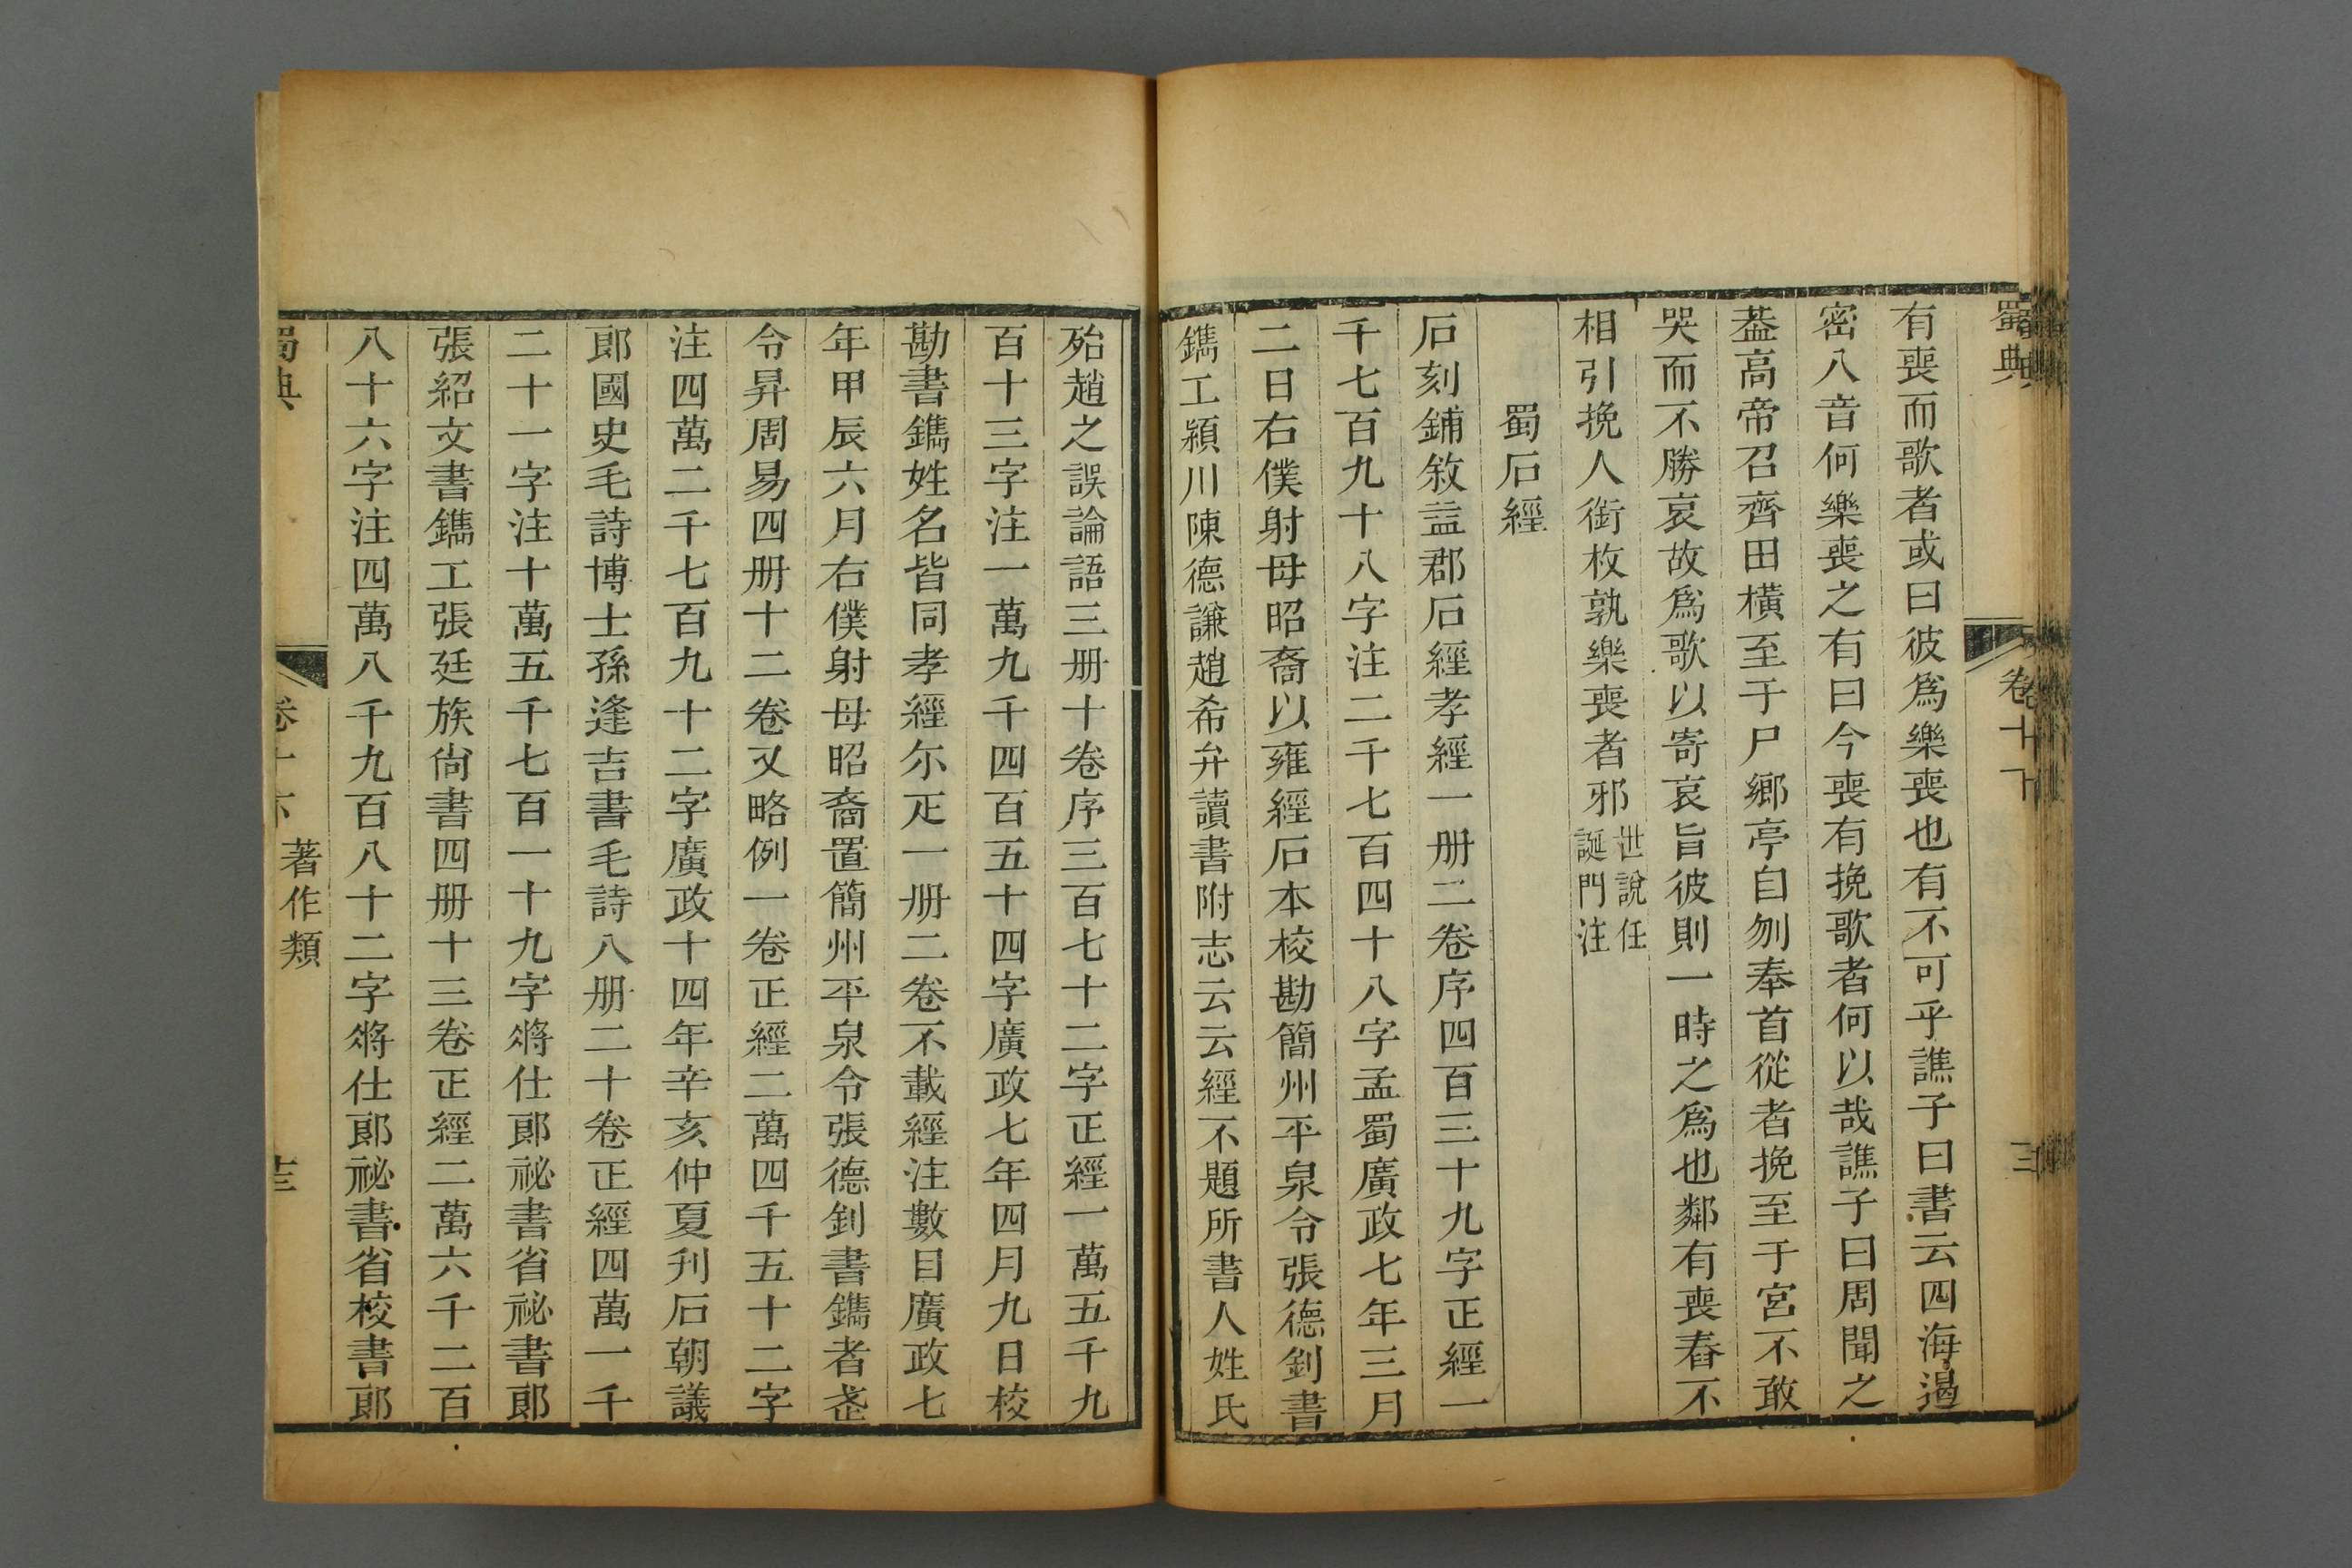 蜀典
卷十
有喪而歌者或曰彼爲樂喪也有不可乎譙子曰書云四海遏
密八音何樂喪之有曰今喪有挽歌者何以哉譙子曰周聞之
葢高帝召齊田橫至于尸鄉亭自刎奉首從者挽至于宮不敢
哭而不勝哀故爲歌以寄哀旨彼則一時之爲也鄰有喪舂不
相引挽人銜枚孰樂喪者邪世說任
誕門注
蜀石經
石刻鋪敘益郡石經孝經一册二卷序四百三十九字正經一
千七百九十八字注二千七百四十八字孟蜀廣政七年三月
二日右僕射毋昭裔以雍經石本校勘簡州平泉令張德釗書
鐫工潁川陳德謙趙希弁讀書附志云云經不題所書人姓氏
殆趙之誤論語三册十卷序三百七十二字正經一萬五千九
百十三字注一萬九千四百五十四字廣政七年四月九日校
勘書鐫姓名皆同孝經尒疋一册二卷不載經注數目廣政七
年甲辰六月右僕射毋昭裔置簡州平泉令張德釗書鐫者武
令昇周易四册十二卷又略例一卷正經二萬四千五十二字
注四萬二千七百九十二字廣政十四年辛亥仲夏刋石朝議
郞國史毛詩博士孫逢吉書毛詩八册二十卷正經四萬一千
二十一字注十萬五千七百一十九字將仕郞祕書省祕書郞
張紹文書鐫工張延族尙書四册十三卷正經二萬六千二百
八十六字注四萬八千九百八十二字將仕郞祕書省校書郞
蜀典
卷十
著作類